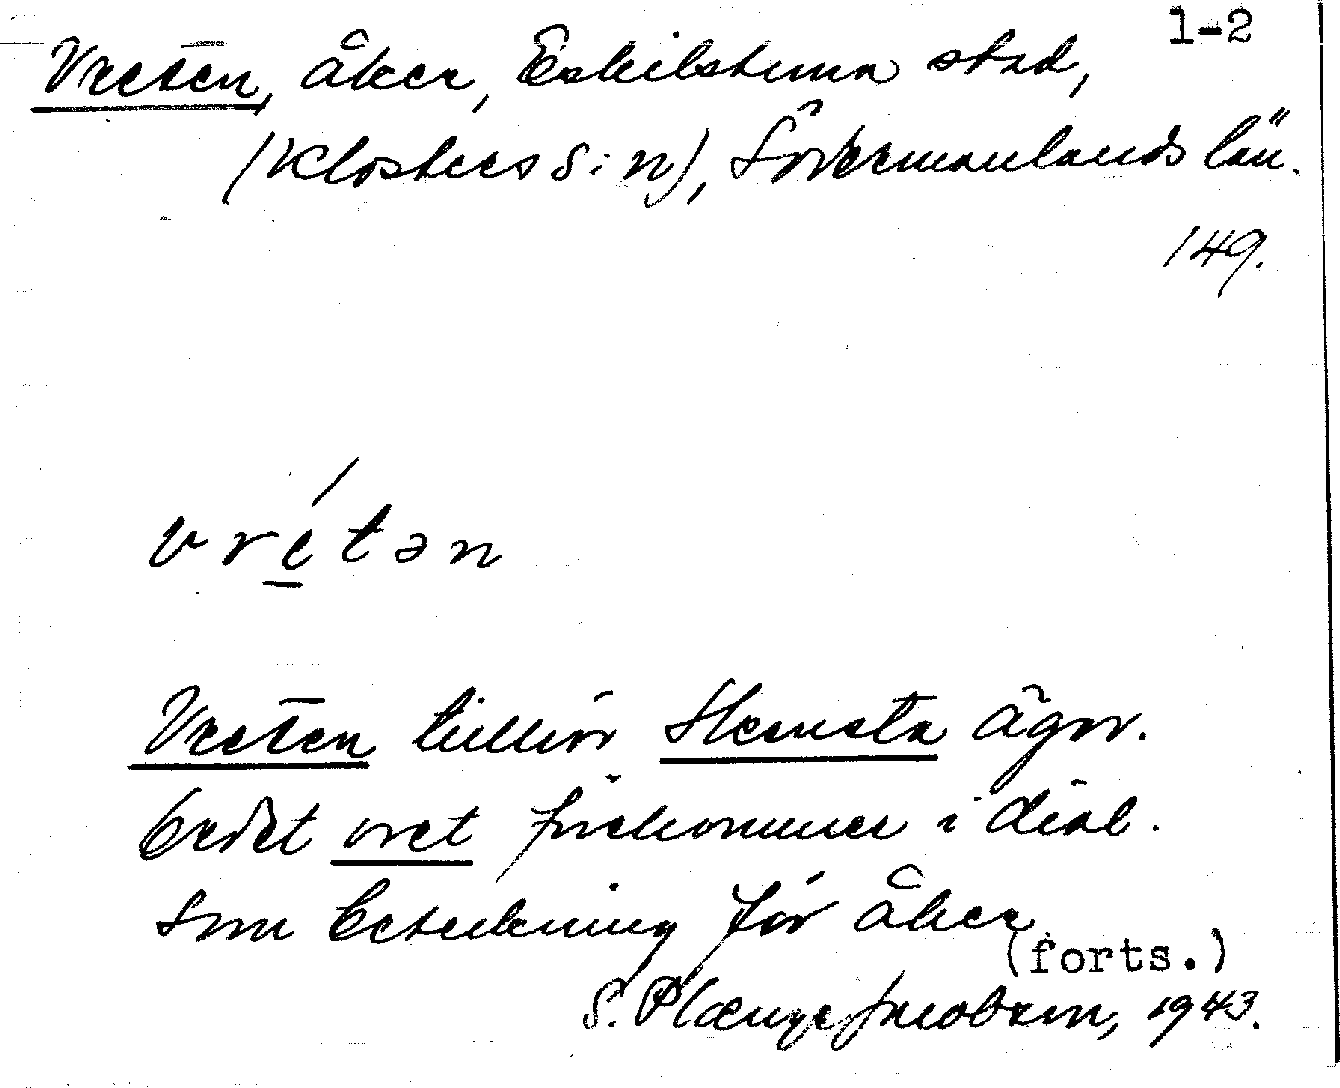 1-2
Vreten, åker, Eskilstuna stad,
(Klosters s:n), Södermanlands län.
149.
vré̲tən
Vreten tillhör Stensta ägor.
Ordet vret förekommer i dial.
som beteckning för åker
(forts.)
S. Plænge Jacobson, 1943.